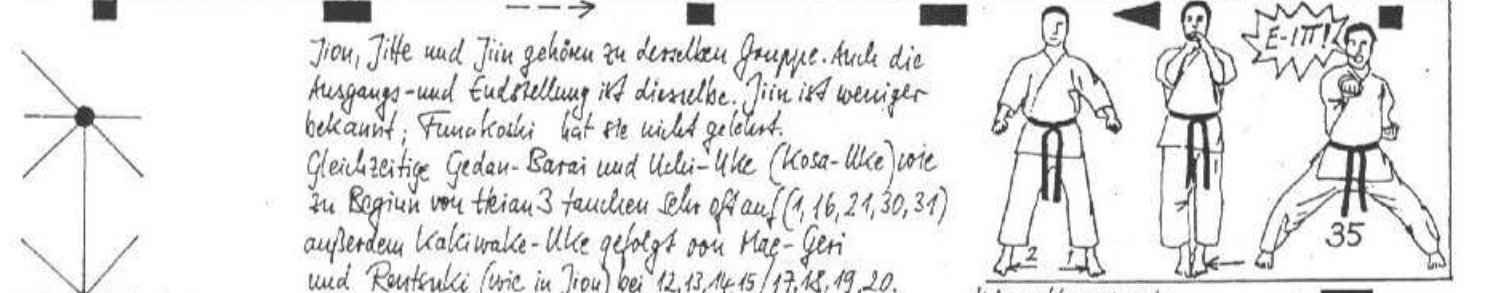 Jion, Jitte und Jiin gehören zu derselben Gruppe. Auch die
Ausgangs- und Endstellung ist dieselbe. Jiin ist weniger
bekannt; Funakoshi hat sie nicht gelehrt.
Gleichzeitige Gedan-Barai und Uchi-Uke (Kosa-Uke) wie
zu Beginn von Heian 3 tauchen sehr oft auf (1, 16, 21, 30, 31)
außerdem Kakiwake-Uke gefolgt von Mae-Geri
und Rentsuki (wie in Jion) bei 12,13,14,15/17,18,19,20.
E-IT!
2 1
35